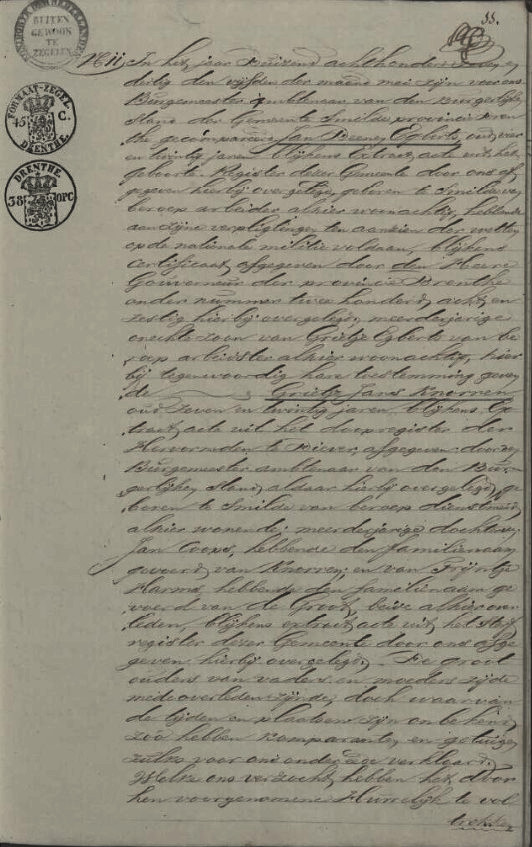 BUITEN
GEWOON
TE
ZEGELEN
55.
FORMAAT-ZEGEL
45 C.
DRENTHE.
DRENTHE
38 OPC
N 11. In het jaar Duizend achthonderd
dertig den vijfden der maand mei zijn voor ons
Burgemeester Ambtenaar van den Burgerlijke
Stand der Gemeente Smilde provincie Dren
the gecompareerd Jan Egberts oud
en twintig jaren blijkens Extract acte uit het
geboorte Register dezer Gemeente door ons af
gegeven hierbij overgelegd, geboren te Smilde van
beroep arbeider alhier woonachtig, hebbende
aan zijne verpligtingen ten aanzien der wetten
op de nationale militie voldaan, blijkens
certificaat, afgegeven door den Heere
Gouverneur der provincie Drenthe
onder nummer twee honderd acht en
zestig hierbij overgelegd, meerderjarige
onechte zoon van Grietje Egberts van be
roep arbeidster alhier woonachtig, hier
bij tegenwoordig hare toestemming geven
de Grietje Jans Knorren
oud zeven en twintig jaren, blijkens Ex
tract acte uit het doopregister der
Hervormden te Diever, afgegeven door den
Burgemeester ambtenaar van den Bur
gerlijken Stand aldaar hierbij overgelegd, ge
boren te Smilde van beroep dienstmeid
alhier wonende, meerderjarige dochter van
Jan Coops, hebbende den familienaam
gevoerd van Knorren, en van Trijntje
Harms hebbende den familienaam ge
voerd van de Groot, beide alhier over
leden, blijkens extract acte uit het sterf
register dezer Gemeente door ons afge
geven hierbij overgelegd. De groot
ouders van vaders en moeders zijde
mede overleden zijnde, doch waarvan
de tijden en plaatsen zijn onbekend,
zoo hebben komparanten en getuigen
zulks voor ons onder eede verklaard.
Welke ons verzocht hebben het door
hen voorgenomene Huwelijk te vol
trekken